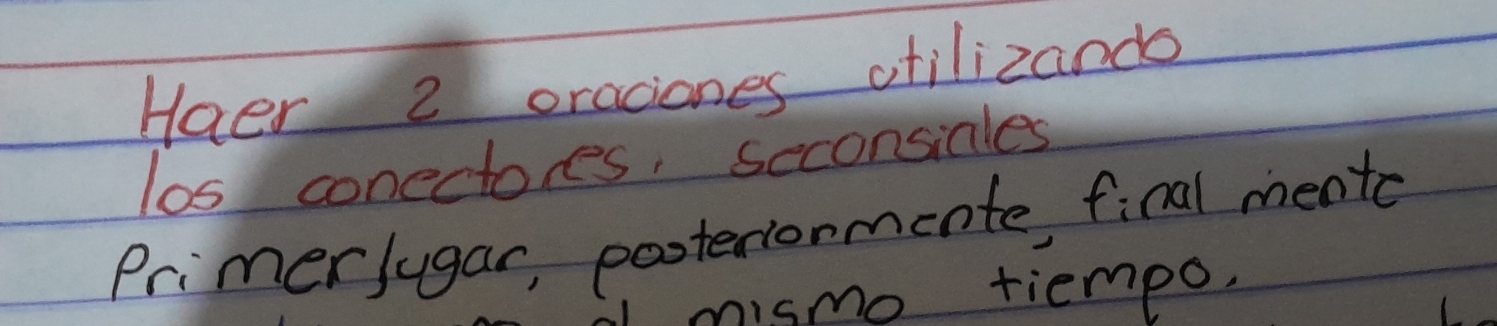 Haer 2 oraciones utilizando
los conectores, secconsiales
Primer lugar, posteriormente, final mente
al mismo tiempo.